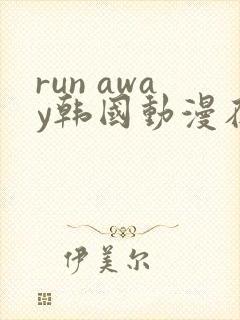 run awa
y韩國動漫在
伊美尔